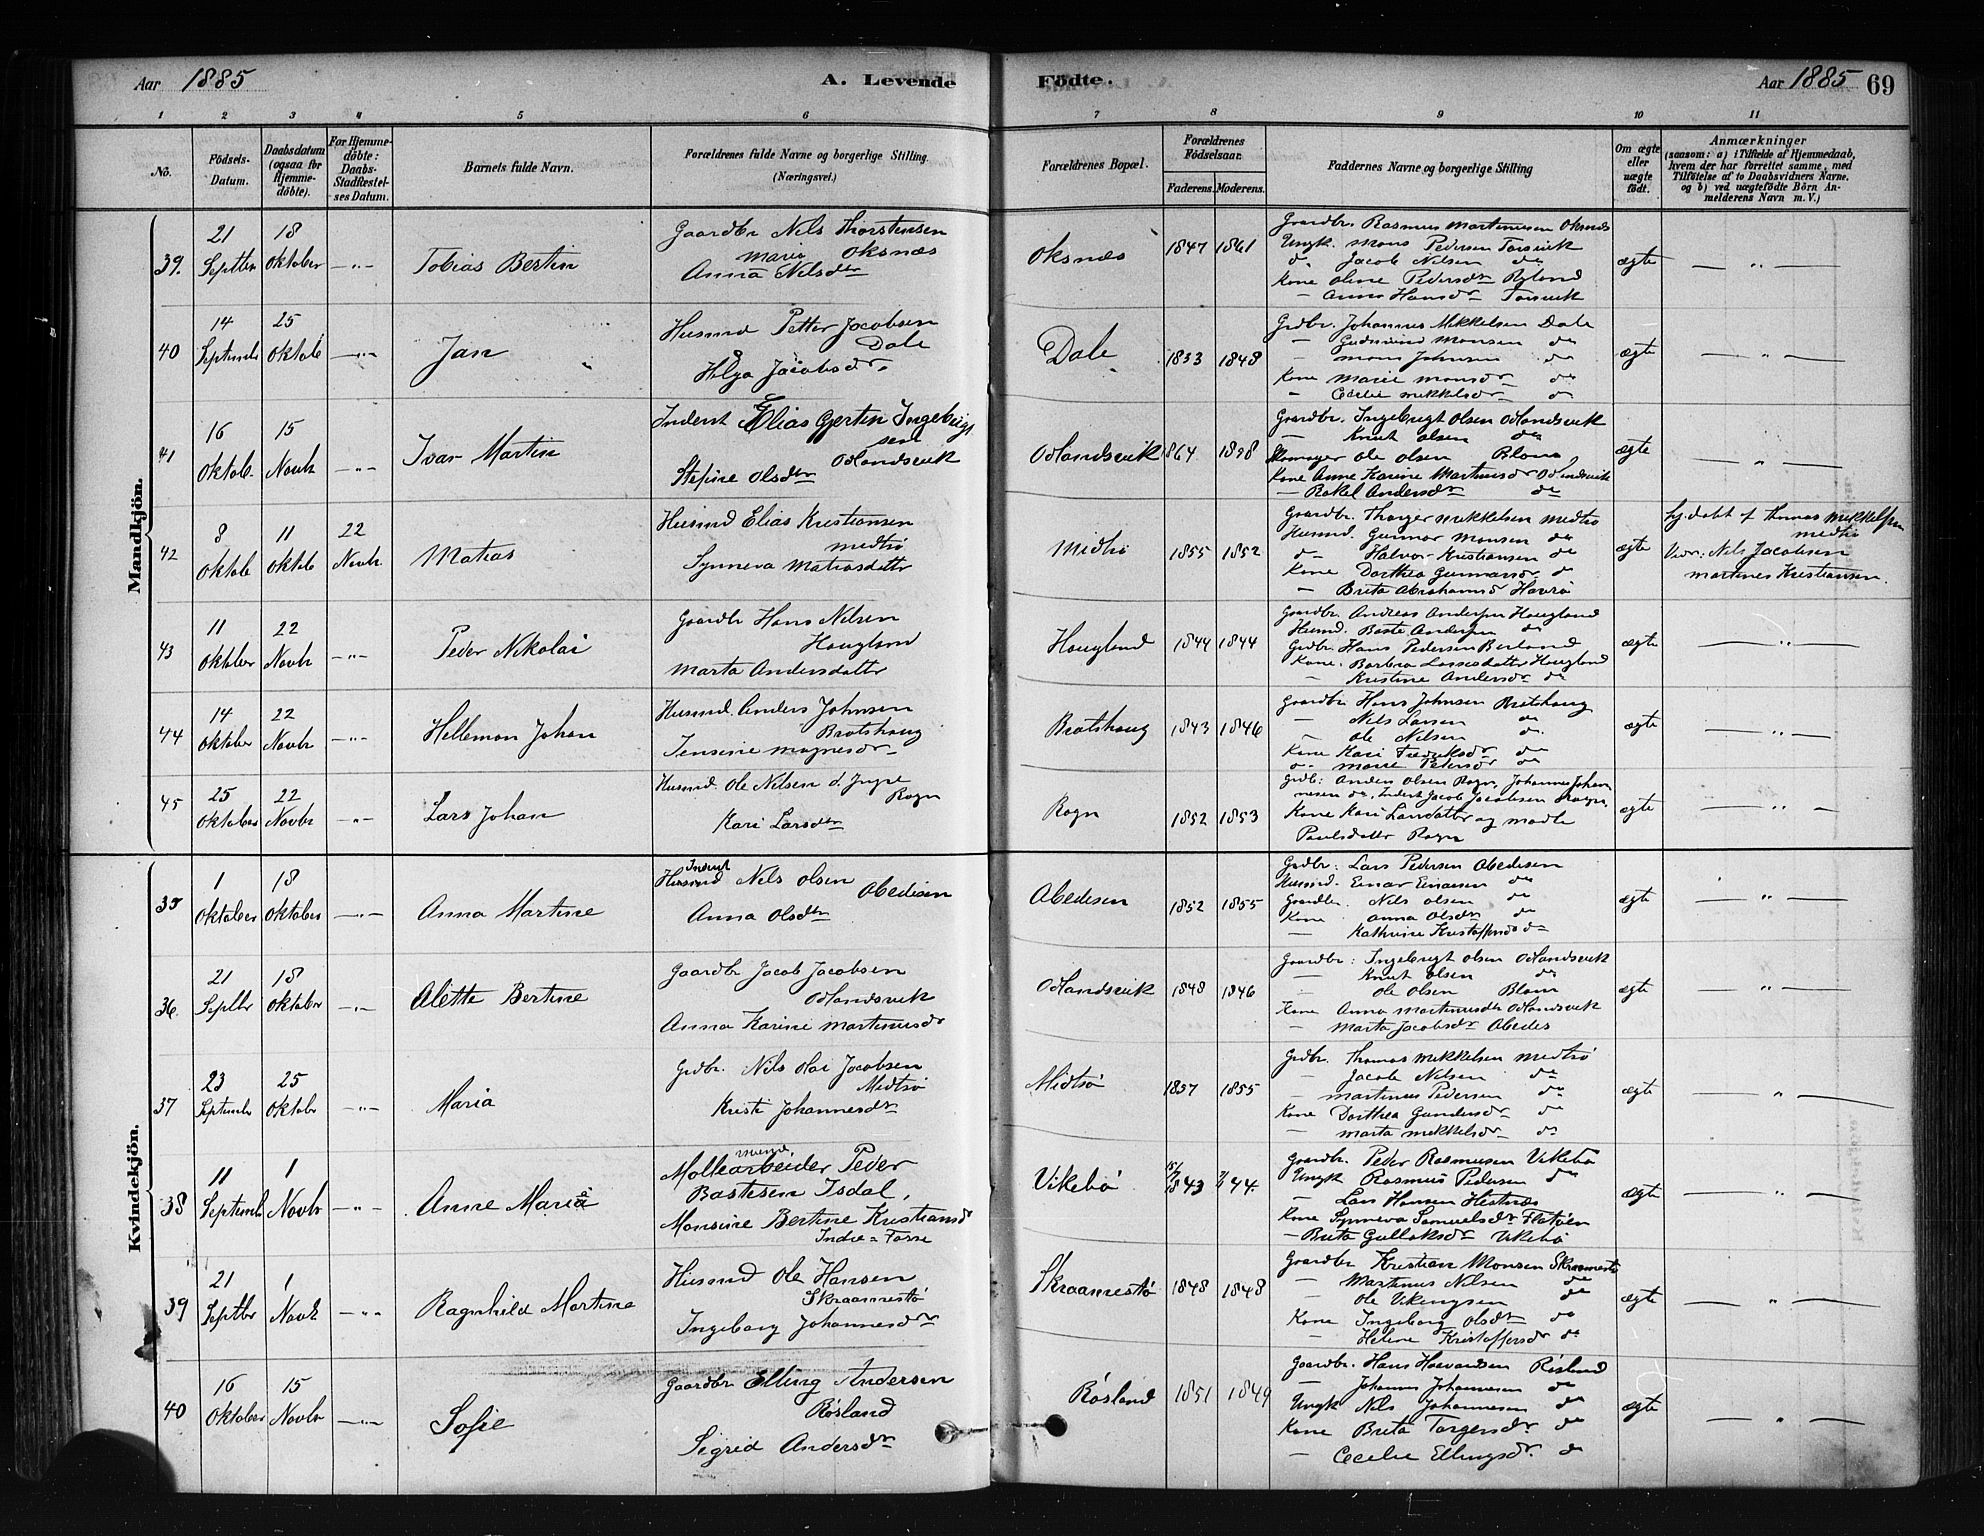 Aar 1885
A. Levende
Födte.
Aar 1885 69
1 2 3 4 5 6 7 8 9 10 11
No.
Födsels-
Datum.
Daabsdatum
(ogsaa for
Hjemme-
döbte).
For Hjemme-
döbte:
Daabs-
Stadfæstel-
ses Datum.
Barnets fulde Navn.
Forældrenes fulde Navne og borgerlige Stilling.
(Næringsvei.)
Forældrenes Bopæl.
Forældrenes
Födselsaar.
Faderens. Moderens.
Faddernes Navne og borgerlige Stilling
Om ægte
eller
uægte
födt.
Anmærkninger
(saasom: a) i Tilfælde af Hjemmedaab,
hvem der har forrettet samme, med
Tilföielse af to Daabsvidners Navne.
og b) ved uægtefödte Börn An-
melderens Navn m. V.)
Mandkjön.
39.
21
Septbr
18
Oktober
—"—
Tobias Bertin
Gaardbr Nils Thorstensen
Oksnæs
Maria
Anna Nilsdr
Oksnæs
1847 1861
Gaardbr. Rasmus Martinusen Oksnæs
Ungk. Mons Pedersen Torsvik
do Jacob Nilsen do
Kone Oline Pedersdr Ryland
— Anna Hansdr Torsvik
ægte
— " —
40
14
Septembr
25
Oktob
—"—
Jan
Husmd Petter Jacobsen
Dale
Helga Jacobsdr.
Dale
1833 1848
Grdbr. Johannes Mikkelsen Dale
— Gudmund Monsen do
— Mons Johnsen do
Kone Marie Monsdr do
— Cecilie Mikkelsdr do
ægte
— " —
41
16
Oktob.
15
Novbr
—"—
Ivar Martin
Inderst Elias Gjertin Ingebrigt
sen
Odlandsvik
Stefine Olsdr
Odlandsvik
1864
Gaardbr. Ingebrigt Olsen Odlandsvik
— Knut Olsen do
Skomager Ole Olsen Blom
Kone Anne Karine Martinusdr Odlandsvik
— Rakel Andersdr do
ægte
— " —
42
8
Oktob
11
Oktob
22
Novbr
Matias
Husmd Elias Kristiansen
Midtsø
Synneva Matiasdatter
Midtsø
1855 1852
Gaardbr. Thorger Mikkelsen Midtsø
Husmd. Gunnar Monsen do
do Halvor Kristiansen do
Kone Dorthea Gunnarsdr do
— Brita Abrahamsd Havrø
ægte
hj. døbt af Thomas Mikkelsen
Midtsø
Vidn: Nils Jacobsen
Martines Kristiansen.
43
11
Oktober
22
Novbr
—"—
Peder Nikolai
Gaardbr Hans Nilsen
Hougland
Marta Andersdatter
Hougland
1844 1844
Gaardbr. Andreas Andersen Hougland
Husmd. Baste Andersen do
Grdbr. Hans Pedersen Berland
Kone. Barbra Lassesdatter Hougland
— Kristine Andersdr do
ægte
— " —
44
14
Oktober
22
Novbr
—"—
Hellemon Johan
Husmd. Anders Johnsen
Bratshaug
Jensine Magnesdr
Bratshaug
1843 1846
Gaardbr Hans Johnsen Bratshaug
— Nils Larsen do
— Ole Nilsen do
Kone Kari Fredriksdr do
do Marie Petersdr do
ægte
— " —
45
25
Oktober
22
Novbr
—"—
Lars Johan
Husmd. Ole Nilsen d. Yngre
Rogn
Kari Larsdr
Rogn
1852 1853
Grdb: Anders Olsen Rogn, Johannes Johan
nesen do, Inderst Jacob Jacobsen Rogn,
Kone Kari Larsdatter og Madle
Paulsdatter Rogn
ægte
— " —
Kvindekjön.
35
1
Oktober
18
Oktober
—"—
Anna Martine
Inderst
Husmd Nils Olsen
Abedisen
Anna Olsdr
Abedisen
1852 1855
Grdbr: Lars Pedersen Abedisen
Husmd. Einar Einarsen do
Gaardbr. Nils Olsen do
Kone Anna Olsdr do
— Kathrine Kristoffersdr do
ægte
— " —
36.
21
Septbr
18
Oktober
—"—
Alette Bertine
Gaardbr Jacob Jacobsen
Odlandsvik
Anna Karine Martinusdr
Odlandsvik
1848 1846
Gaardbr: Ingebrigt Olsen Odlandsvik
— Knut Olsen do
— Ole Olsen Blom
Kone Anna Martinusdtr Odlandsvik
— Marta Jacobsdr Abedes
ægte
— " —
37
23
Septembr
25
Oktobr
—"—
Maria
Grdbr. Nils Olai Jacobsen
Midtsø
Kristi Johannesdr
Midtsø
1857 1855
Grdbr. Thomas Mikkelsen Midtsø
— Jacob Nilsen do
— Martinus Pedersen do
Kone Dorthea Gundersdr do
— Marta Mikkelsdr do
ægte
— " —
38
11
Septemb
1
Novbr
—"—
Anne Maria
Møllearbeider Peder
Bastesen Isdal,
Monsine Bertine Kristiansdr
Indre-Fosse
Vikebø
Gaardbr. Peder Rasmusen Vikebø
Ungk Rasmus Pedersen do
— Lars Hansen Hestnæs
Kone Synneva Samuelsdr Flatøen
— Brita Gullaksdr Vikebø
ægte
— " —
39
21
Septbr
1
Novbr
—"—
Ragnhild Martine
Husmd Ole Hansen
Skraamestø
Ingeborg Johannesdr
Skraamestø
1848 1848
Gaardbr Kristian Monsen Skraamestø
— Martinus Nilsen do
— Ole Vikingsen do
Kone Ingeborg Olsdr do
— Helene Kristoffersdr do
ægte
— " —
40
16
Oktober
15
Novbr
—"—
Sofie
Gaardbr Elling Andersen
Røsland
Sigrid Andersdr
Røsland
1851 1849
Gaardbr. Hans Haavardsen Røsland
— Johannes Johannesen do
Ungk Nils Johannesen do
Kone Brita Torgersdr do
— Cecelie Ellingsdr do
ægte
— " —